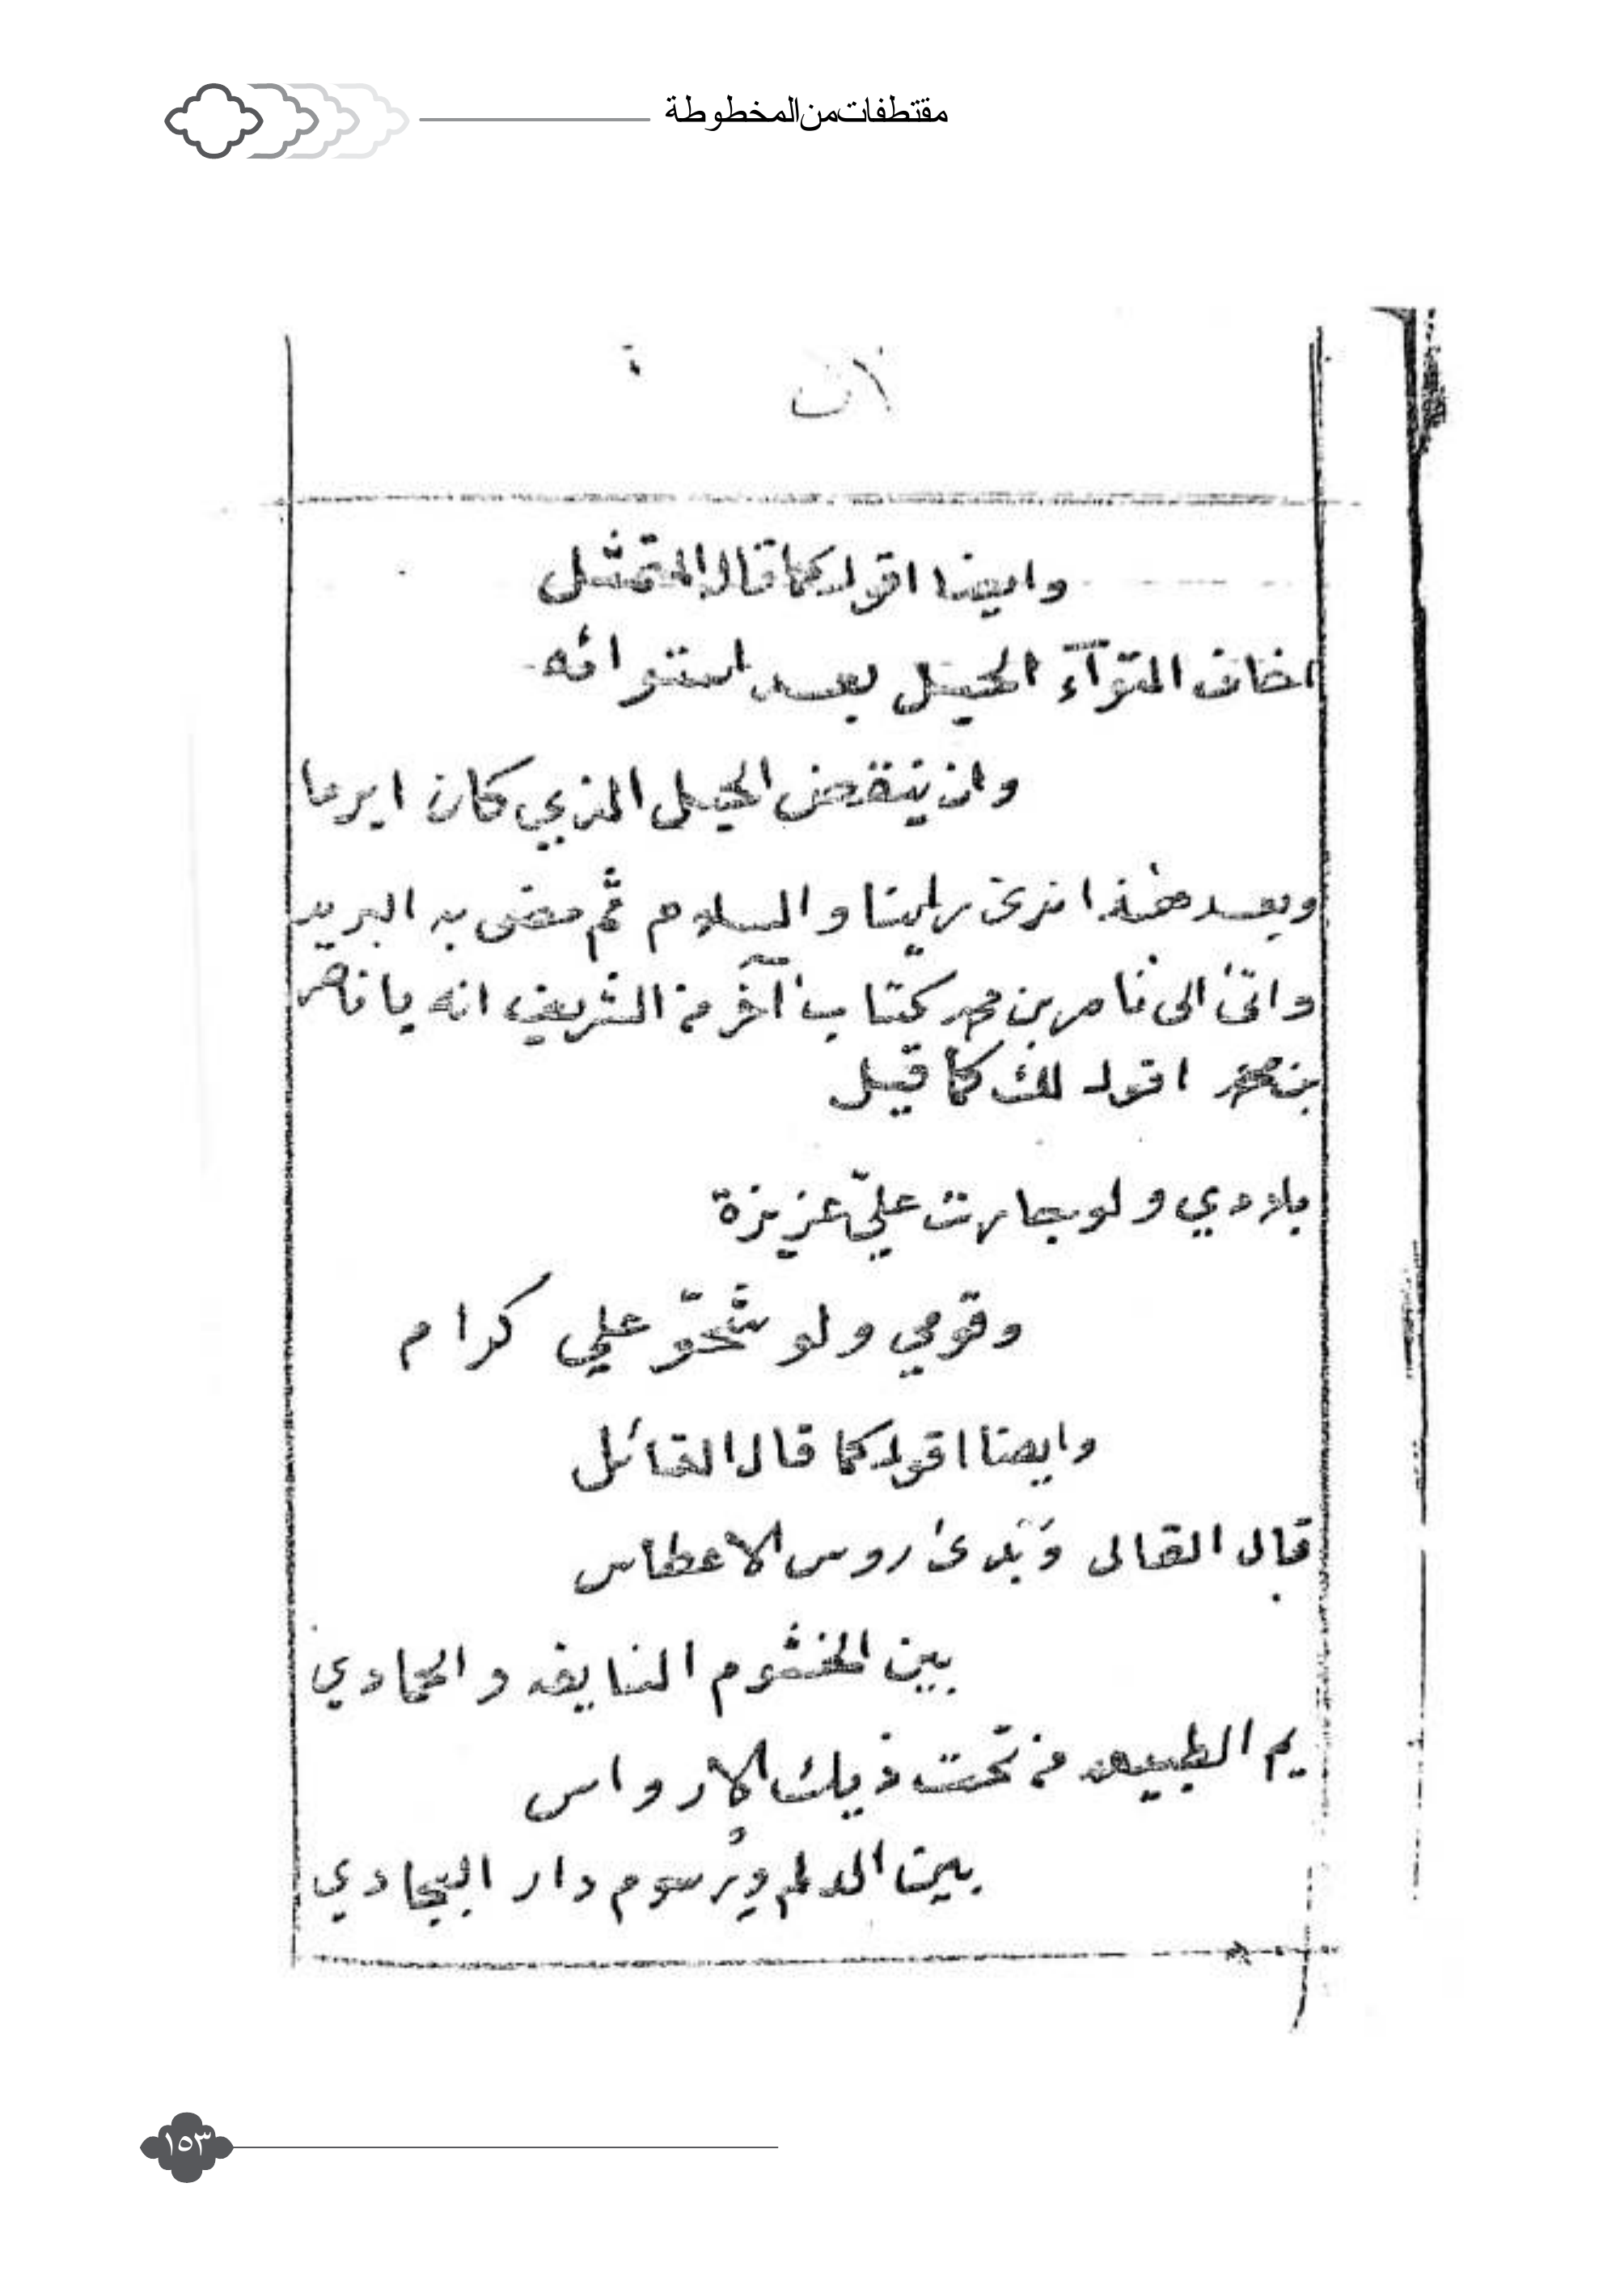 مقتطفات من المخطوطة
وايضا اقول كما قال المتمثل
اخاف التوآء الحبل بعد استوائه
وان ينقض الحبل الذي كان ابرما
وبعد هذا نرى راينا والسلام ثم مضى به البريد
واتى الى ناصر بن محمد كتاب آخر من الشريف انه يا ناصر
بن محمد اقول لك كما قيل
بلادي ولو جارت عليّ عزيزة
وقومي ولو شحّو علي كرام
وايضا اقول كما قال القائل
قال القال وَبدى روس الاعطاس
بين الخشوم النايفه والحمادي
يم الطبيعه من تحت ذيك الارواس
بين الدلم ورسوم دار البجادي
١٥٣